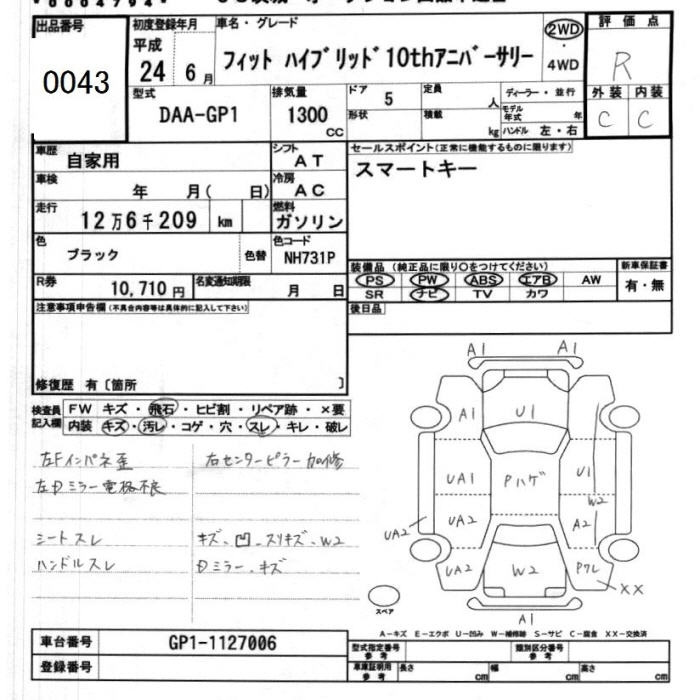 出品番号
0043
初度登録年月
平成
24 6月
車名・グレード
フィット ハイブリッド10thアニバーサリー
2WD
・
4WD
評価点
R
外装 内装
C C
型式
DAA-GP1
排気量
1300
CC
ドア
5
形状
定員
人
積載
kg
ディーラー・並行
モデル年式 年
ハンドル 左・右
車歴
自家用
シフト
AT
車検
年 月( 日)
冷房
AC
走行
12万6千209 km
燃料
ガソリン
色
ブラック
色替
色コード
NH731P
R券
10,710円
名変通知期限
月 日
セールスポイント(正常に機能するものに限ります)
スマートキー
装備品(純正品に限り○をつけてください)
PS PW ABS エアB AW
SR ナビ TV カワ
新車保証書
有・無
後日品
注意事項申告欄(不具合内容等は具体的に記入して下さい)
修復歴 有〔箇所 〕
検査員記入欄
FW キズ・飛石・ヒビ割・リペア跡・×要
内装 キズ・汚レ・コゲ・穴・スレ・キレ・破レ
左Fインパネ歪
右センターピラー加修
左Dミラー電格不良
シートスレ
キズ、凹、スリキズ、W2
ハンドルスレ
Dミラー、キズ
A1 A1
A1
U1
UA1
Pハゲ
U1
W2
UA2
A2
UA2
UA2
W2
Pワレ
XX
A1
スペア
A-キズ E-エクボ U-凹み W-補修跡 S-サビ C-腐食 XX-交換済
車台番号
GP1-1127006
登録番号
型式指定番号
参考
類別区分番号
参考
車庫証明用
参考
長さ cm
幅 cm
高さ cm